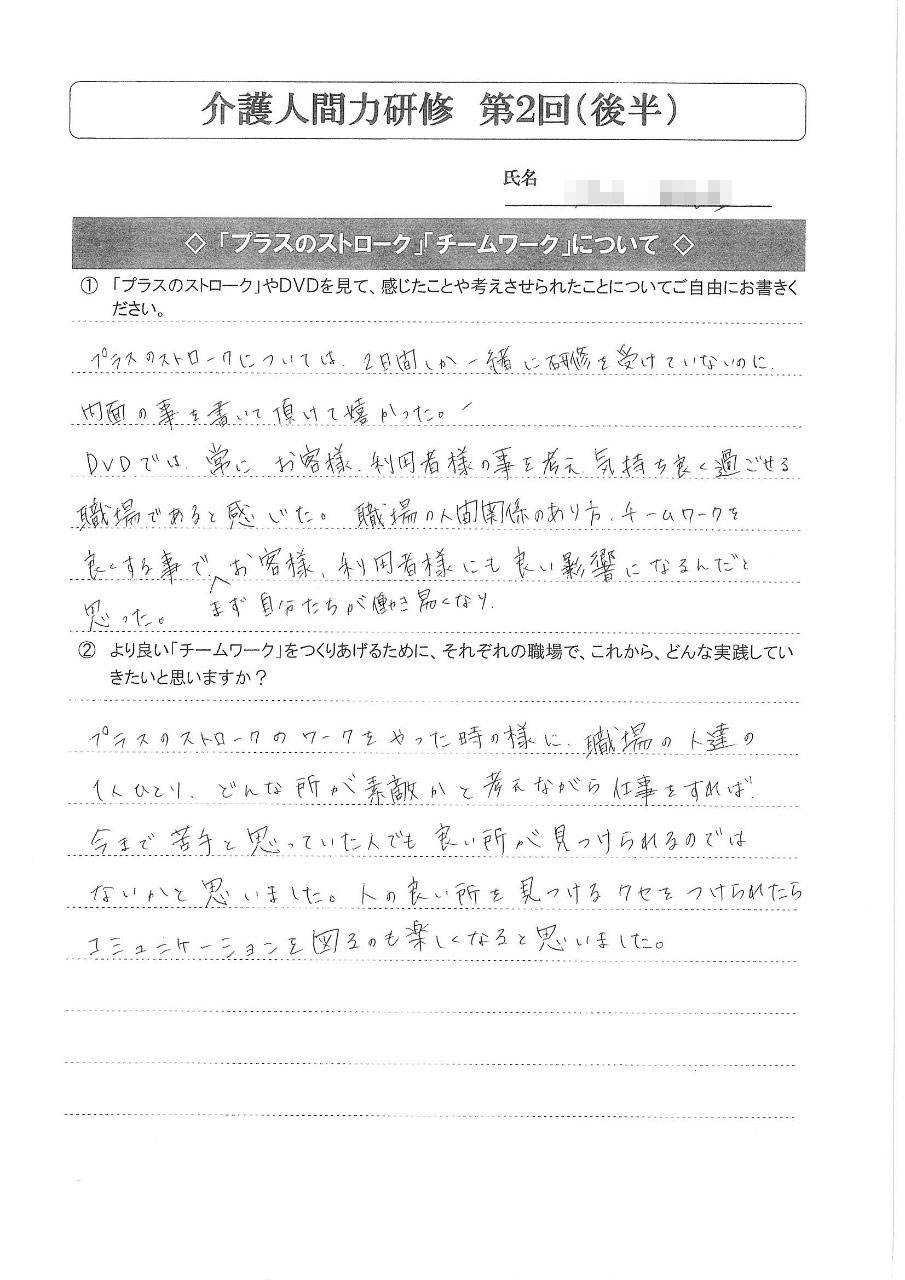 介護人間力研修 第2回(後半)
氏名
◇「プラスのストローク」「チームワーク」について◇
① 「プラスのストローク」やDVDを見て、感じたことや考えさせられたことについてご自由にお書きく
ださい。
プラスのストロークについては、2日間しか一緒に研修を受けていないのに、
内面の事を書いて頂けて嬉かった。
DVDでは、常に お客様、利用者様の事を考え、気持ち良く過ごせる
職場であると感じた。 職場の人間関係のあり方、チームワークを
良くする事で、お客様、利用者様にも良い影響になるんだと
まず自分たちが働き易くなり、
思った。
② より良い「チームワーク」をつくりあげるために、それぞれの職場で、これから、どんな実践してい
きたいと思いますか？
プラスのストロークのワークをやった時の様に、職場の人達の
1人ひとり、どんな所が素敵かと考えながら仕事をすれば、
今まで苦手と思っていた人でも良い所が見つけられるのでは
ないかと思いました。人の良い所を見つけるクセをつけられたら
コミュニケーションを図るのも楽しくなると思いました。